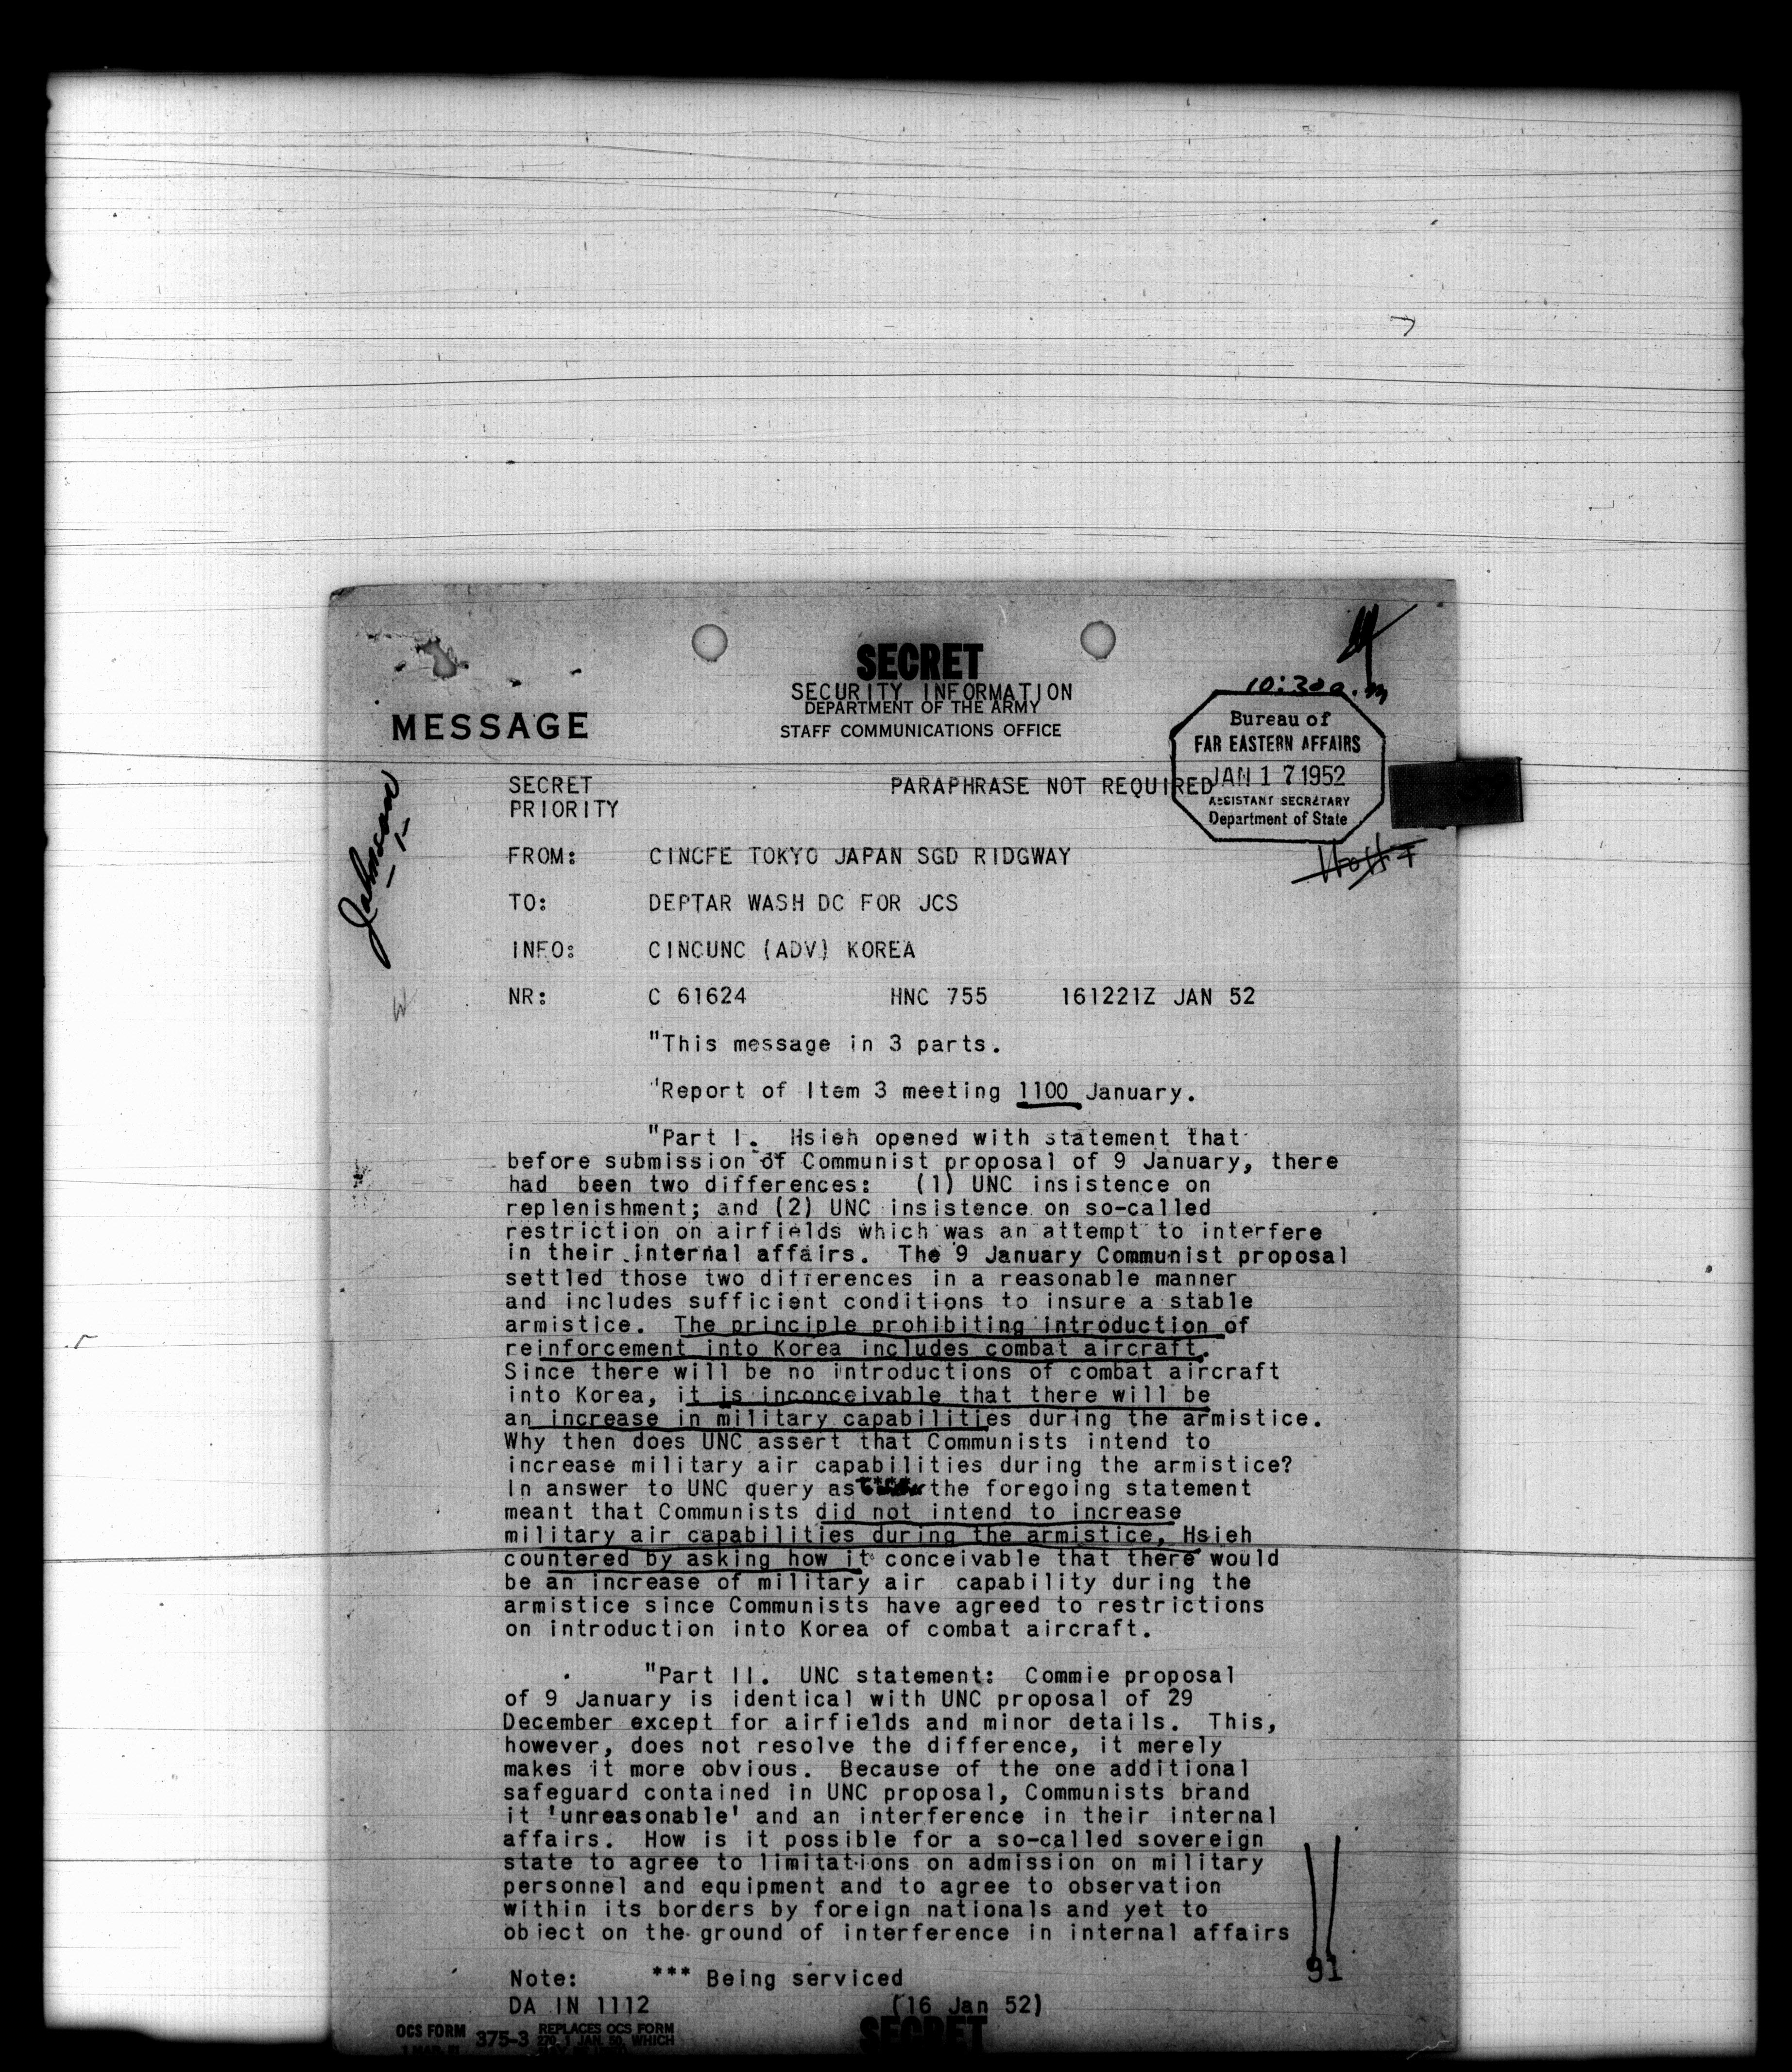 SECRET
SECURITY INFORMATION
DEPARTMENT OF THE ARMY
STAFF COMMUNICATIONS OFFICE
MESSAGE
10:30a.m
Bureau of
FAR EASTERN AFFAIRS
JAN 17 1952
ASSISTANT SECRETARY
Department of State
Johnson
SECRET PARAPHRASE NOT REQUIRED
PRIORITY
FROM: CINCFE TOKYO JAPAN SGD RIDGWAY
TO: DEPTAR WASH DC FOR JCS
INFO: CINCUNC (ADV) KOREA
NR: C 61624 HNC 755 161221Z JAN 52
"This message in 3 parts.
"Report of Item 3 meeting 1100 January.
"Part I. Hsieh opened with statement that
before submission of Communist proposal of 9 January, there
had been two differences: (1) UNC insistence on
replenishment; and (2) UNC insistence on so-called
restriction on airfields which was an attempt to interfere
in their internal affairs. The 9 January Communist proposal
settled those two differences in a reasonable manner
and includes sufficient conditions to insure a stable
armistice. The principle prohibiting introduction of
reinforcement into Korea includes combat aircraft.
Since there will be no introductions of combat aircraft
into Korea, it is inconceivable that there will be
an increase in military capabilities during the armistice.
Why then does UNC assert that Communists intend to
increase military air capabilities during the armistice?
In answer to UNC query as the foregoing statement
meant that Communists did not intend to increase
military air capabilities during the armistice, Hsieh
countered by asking how it conceivable that there would
be an increase of military air capability during the
armistice since Communists have agreed to restrictions
on introduction into Korea of combat aircraft.
"Part II. UNC statement: Commie proposal
of 9 January is identical with UNC proposal of 29
December except for airfields and minor details. This,
however, does not resolve the difference, it merely
makes it more obvious. Because of the one additional
safeguard contained in UNC proposal, Communists brand
it 'unreasonable' and an interference in their internal
affairs. How is it possible for a so-called sovereign
state to agree to limitations on admission on military
personnel and equipment and to agree to observation
within its borders by foreign nationals and yet to
object on the ground of interference in internal affairs
91
Note: *** Being serviced
DA IN 1112 (16 Jan 52)
SECRET
OCS FORM 375-3 REPLACES OCS FORM
1 MAR 51 270, 1 JAN. 50, WHICH